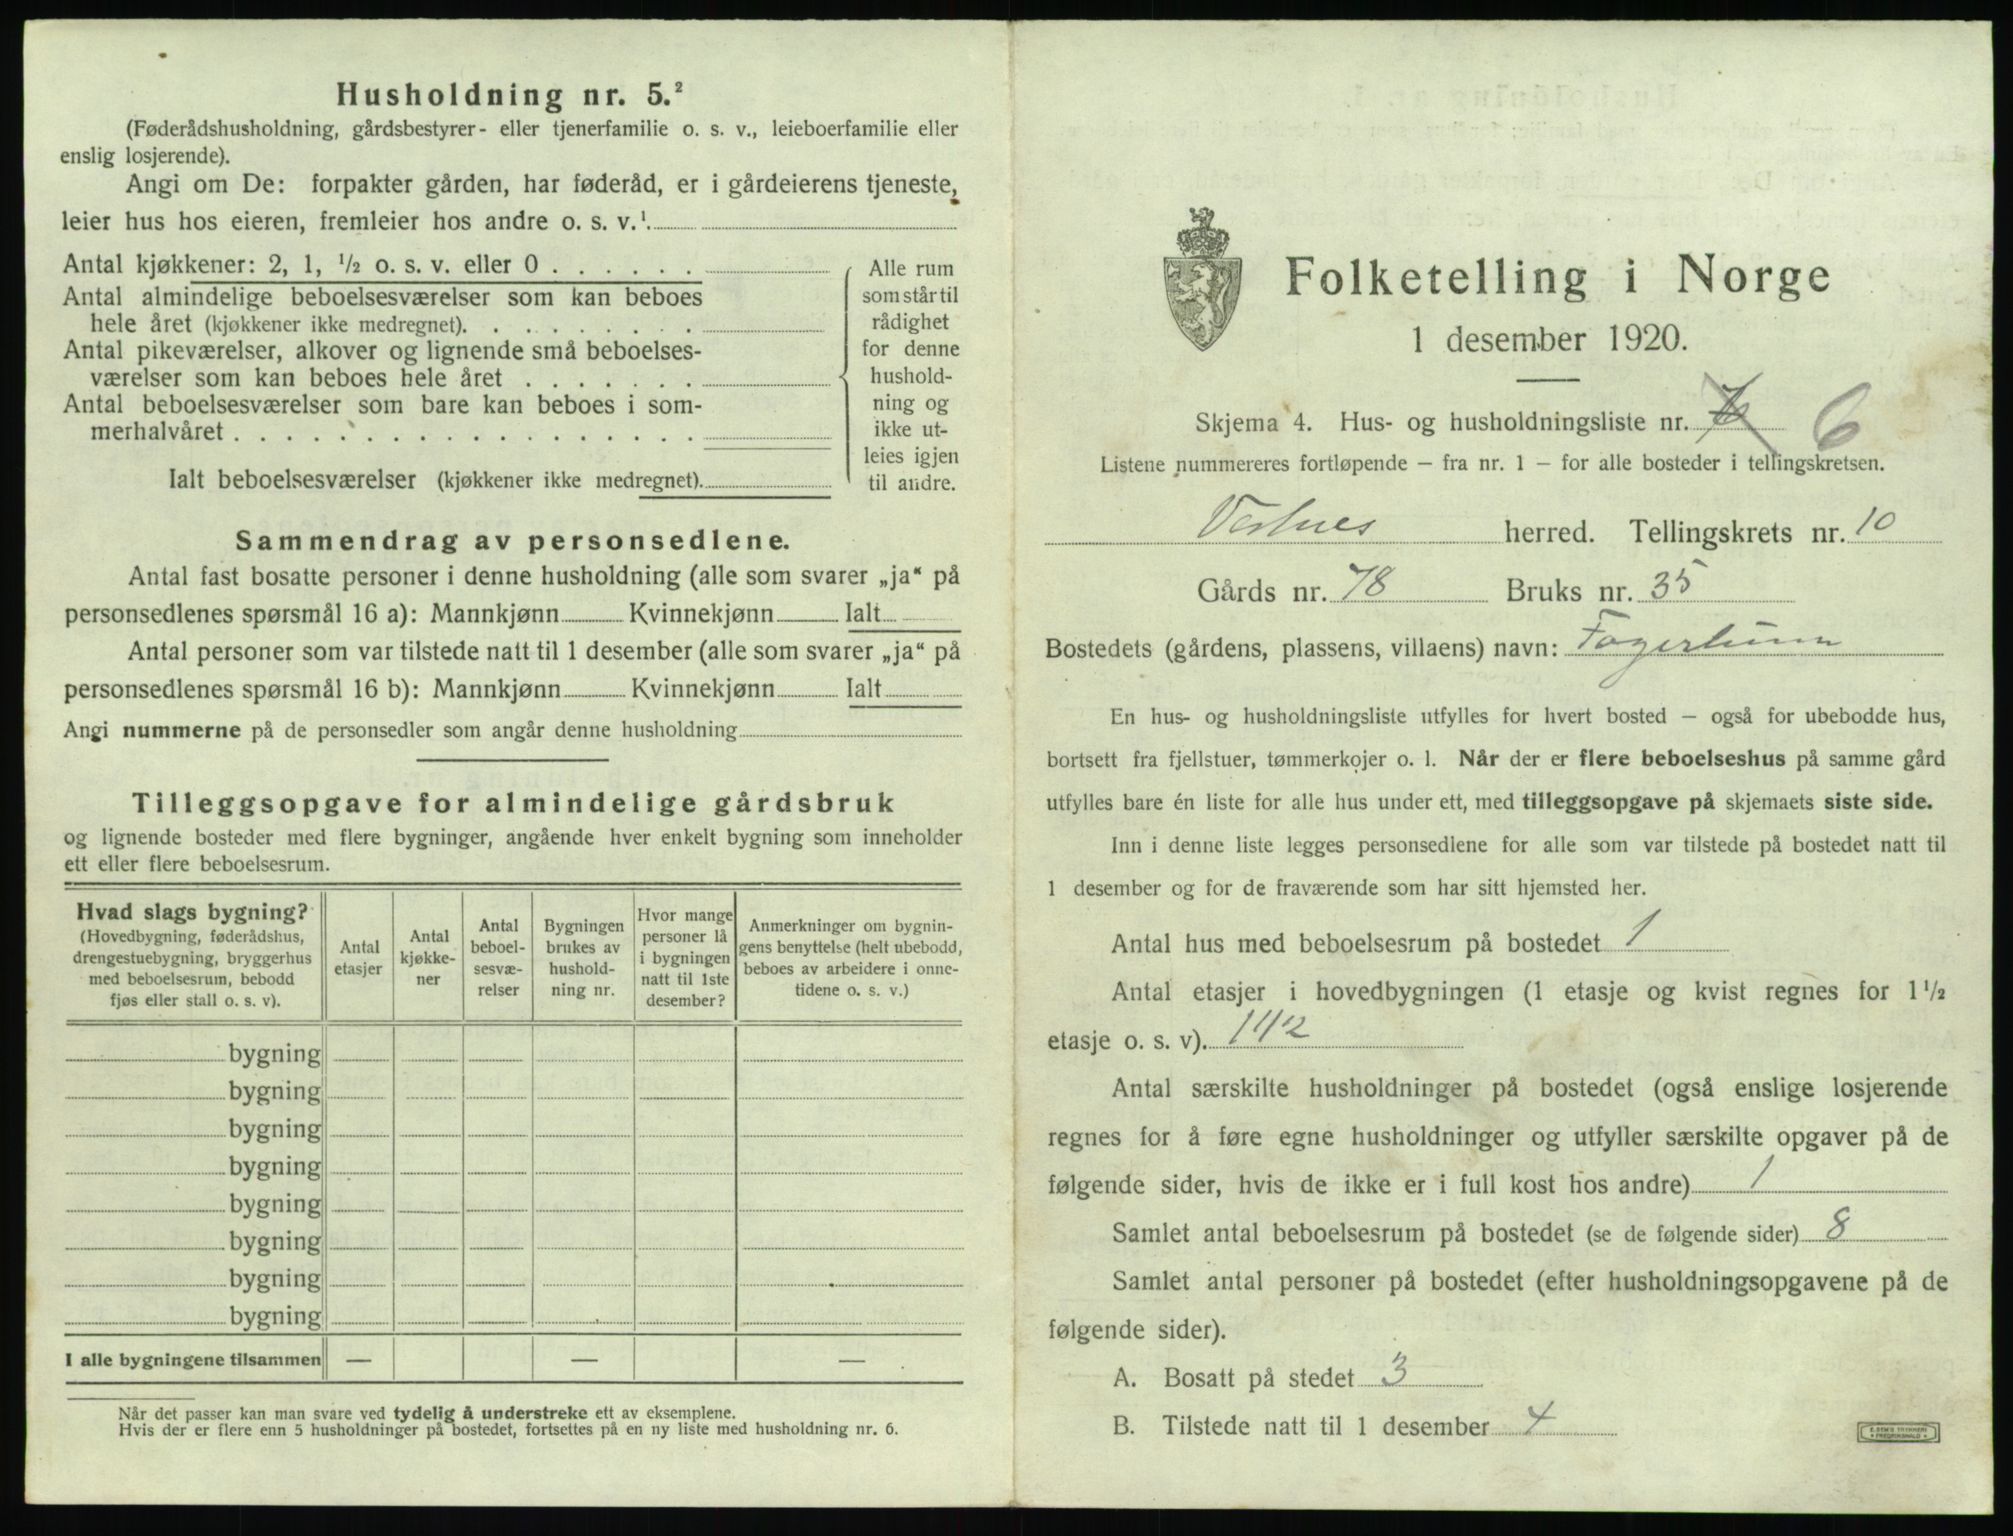 Husholdning nr. 5.²
(Føderådshusholdning, gårdsbestyrer- eller tjenerfamilie o. s. v., leieboerfamilie eller
enslig losjerende).
Angi om De: forpakter gården, har føderåd, er i gårdeierens tjeneste,
leier hus hos eieren, fremleier hos andre o. s. v.¹
Antal kjøkkener: 2, 1, ½ o. s. v. eller 0 . . . . . .
Antal almindelige beboelsesværelser som kan beboes
hele året (kjøkkener ikke medregnet). . . . . . . . .
Antal pikeværelser, alkover og lignende små beboelses-
værelser som kan beboes hele året . . . . . . .
Antal beboelsesværelser som bare kan beboes i som-
merhalvåret . . . . . . . . . . . . . . . . . .
Ialt beboelsesværelser (kjøkkener ikke medregnet).
Alle rum
som står til
rådighet
for denne
hushold-
ning og
ikke ut-
leies igjen
til andre.
Sammendrag av personsedlene.
Antal fast bosatte personer i denne husholdning (alle som svarer „ja“ på
personsedlenes spørsmål 16 a): Mannkjønn Kvinnekjønn Ialt
Antal personer som var tilstede natt til 1 desember (alle som svarer „ja“ på
personsedlenes spørsmål 16 b): Mannkjønn Kvinnekjønn Ialt
Angi nummerne på de personsedler som angår denne husholdning
Tilleggsopgave for almindelige gårdsbruk
og lignende bosteder med flere bygninger, angående hver enkelt bygning som inneholder
ett eller flere beboelsesrum.
Hvad slags bygning?
(Hovedbygning, føderådshus,
drengestuebygning, bryggerhus
med beboelsesrum, bebodd
fjøs eller stall o. s. v).
Antal
etasjer
Antal
kjøkke-
ner
Antal
beboel-
sesvæ-
relser
Bygningen
brukes av
hushold-
ning nr.
Hvor mange
personer lå
i bygningen
natt til 1ste
desember?
Anmerkninger om bygnin-
gens benyttelse (helt ubebodd,
beboes av arbeidere i onne-
tidene o. s. v.)
bygning
bygning
bygning
bygning
bygning
bygning
bygning
bygning
I alle bygningene tilsammen — — —
Når det passer kan man svare ved tydelig å understreke ett av eksemplene.
Hvis der er flere enn 5 husholdninger på bostedet, fortsettes på en ny liste med husholdning nr. 6.
Folketelling i Norge
1 desember 1920.
Skjema 4. Hus- og husholdningsliste nr. 6
Listene nummereres fortløpende – fra nr. 1 – for alle bosteder i tellingskretsen.
Vestnes herred. Tellingskrets nr. 10
Gårds nr. 78 Bruks nr. 35
Bostedets (gårdens, plassens, villaens) navn: Fagerlunn
En hus- og husholdningsliste utfylles for hvert bosted – også for ubebodde hus,
bortsett fra fjellstuer, tømmerkojer o. l. Når der er flere beboelseshus på samme gård
utfylles bare én liste for alle hus under ett, med tilleggsopgave på skjemaets siste side.
Inn i denne liste legges personsedlene for alle som var tilstede på bostedet natt til
1 desember og for de fraværende som har sitt hjemsted her.
Antal hus med beboelsesrum på bostedet 1
Antal etasjer i hovedbygningen (1 etasje og kvist regnes for 1 ½
etasje o. s. v). 1 1/2
Antal særskilte husholdninger på bostedet (også enslige losjerende
regnes for å føre egne husholdninger og utfyller særskilte opgaver på de
følgende sider, hvis de ikke er i full kost hos andre) 1
Samlet antal beboelsesrum på bostedet (se de følgende sider) 8
Samlet antal personer på bostedet (efter husholdningsopgavene på de
følgende sider).
A. Bosatt på stedet 3
B. Tilstede natt til 1 desember 4
E. SEM'S TRYKKERI
FREDRIKSHALD